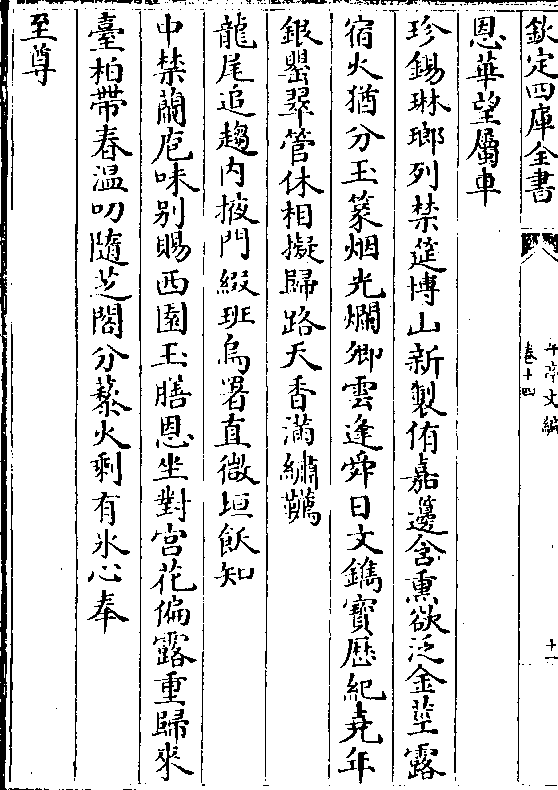 欽定四庫全書
午亭文編
卷十四
十一
恩華望屬車
珍錫琳瑯列禁筵博山新製侑嘉籩含熏欲泛金莖露
宿火猶分玉篆烟光爛卿雲逢舜日文鐫寶歷紀堯年
銀罌翠管休相擬歸路天香滿繡韉
龍尾追趨内掖門綴班烏署直微垣飫知
中禁蘭庖味别賜西園玉膳恩坐對宫花偏露重歸來
臺柏帶春温叨隨芝閣分藜火剩有氷心奉
至尊